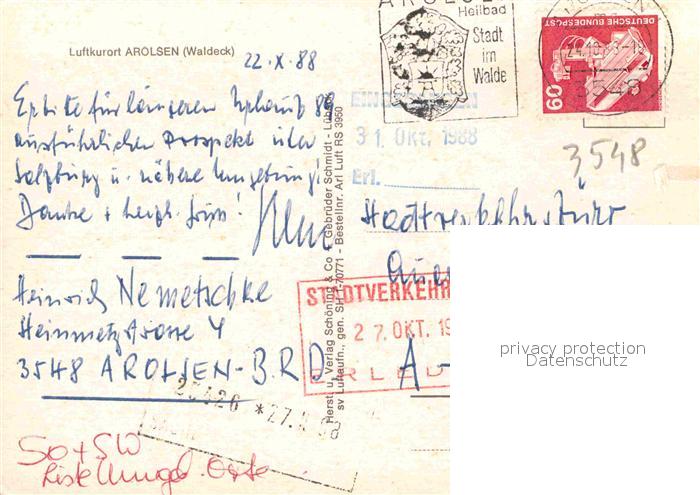 Luftkurort AROLSEN (Waldeck)
22.X.88
AROLSEN
Heilbad
Stadt
im
Walde
DEUTSCHE BUNDESPOST
60
24.10.88
3548
3548
Erbitte für längeren Urlaub 89
ausführlichen Prospekt über
Salzburg u. nähere Umgebung!
Danke + herzl. Gruß!
EINGEGANGEN
31. Okt. 1988
Erl.
Stadtverkehrsbüro
Heinrich Nemetschke
Heinmetzstrasse 4
3548 AROLSEN - B.R.D.
Herst. u. Verlag Schöning & Co + Gebrüder Schmidt - Lübeck
sv Luftaufn., gen. SH 1-70771 - Bestellnr. Arl Luft RS 3950
STADTVERKEHR
27. OKT. 19
ERLED
A-
So + SW
privacy protection
Datenschutz